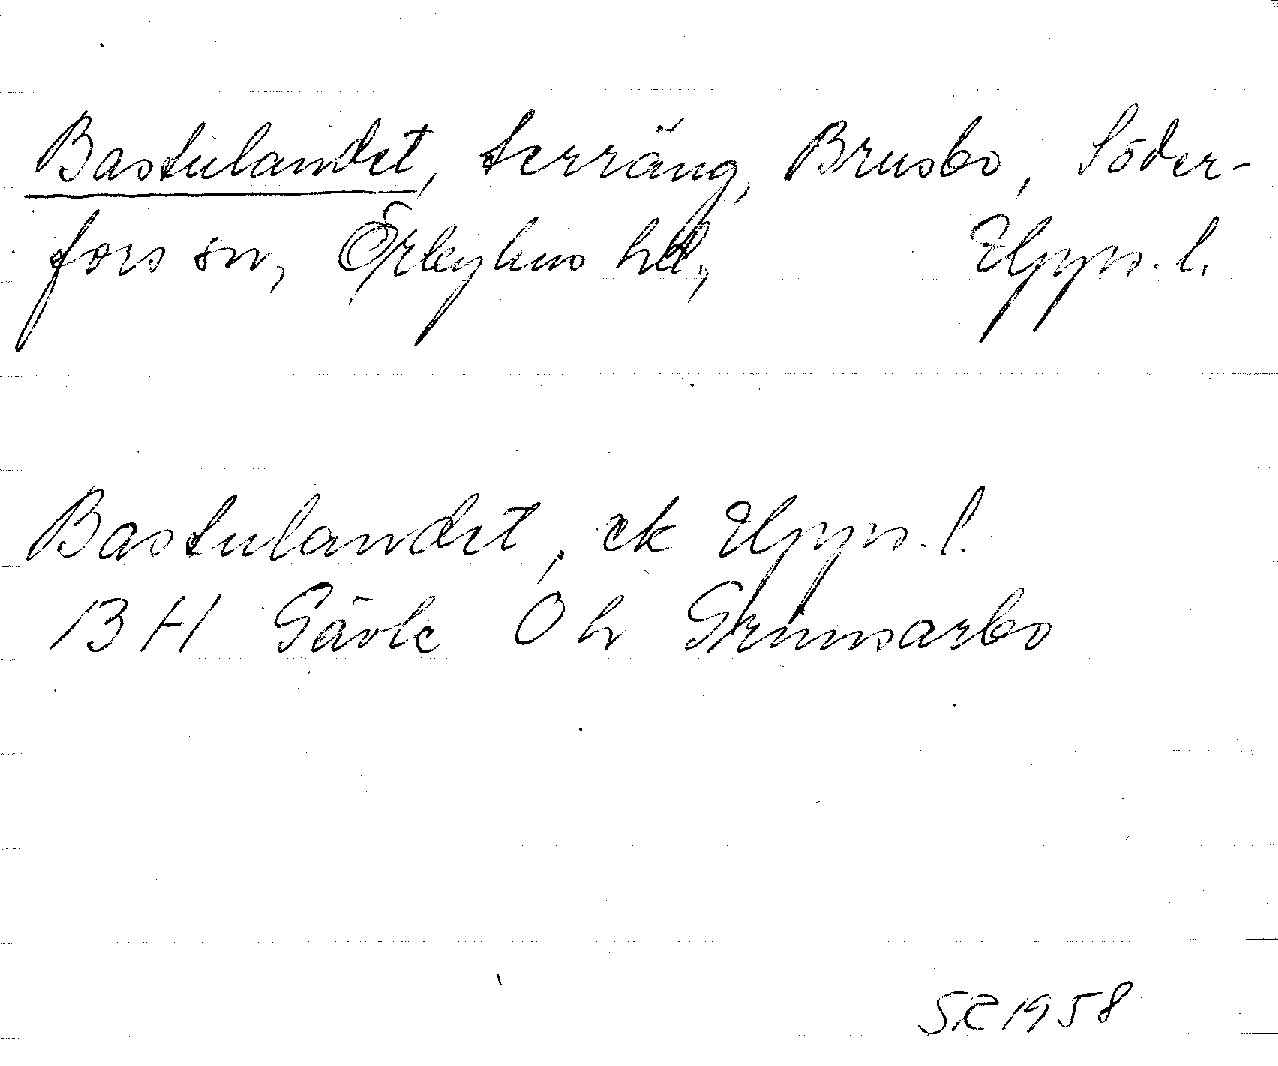 Bastulandet, terräng, Brusbo, Söder-
fors sn, Örbyhus hd, Upps. l.
Bastulandet, ek Upps. l.
13 H Gävle 0 h Grimsarbo
SR 1958